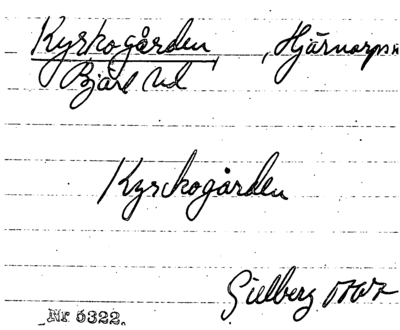 Kyrkogården, , Hjärnarps
Bjäre hd
Kyrckogården
Gillberg 1767
Nr 5322.